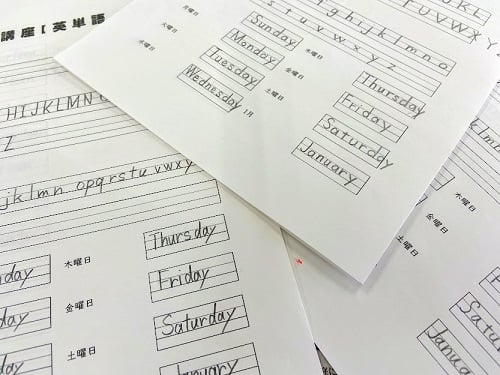 講座【英単語
HIJKLMN
Z
jklmn opqrstuvwxy
木曜日 Thursday
金曜日 Friday
土曜日 Saturday
January
ghijklmno
stuvwxyz
月曜日 Sunday 木曜日 Thursday
火曜日 Monday 金曜日 Friday
水曜日 Tuesday 土曜日 Saturday
Wednesday 1月 January
TUVWXYZ
木曜日
金曜日
土曜日